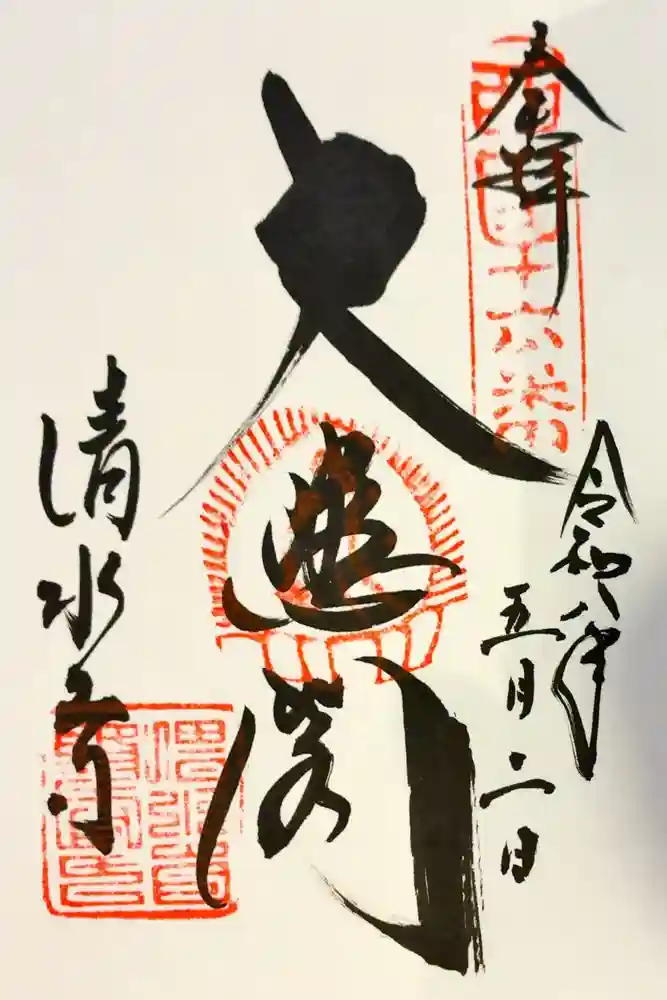 奉拝
西國十六番
令和八年
五月二日
大悲閣
清水寺